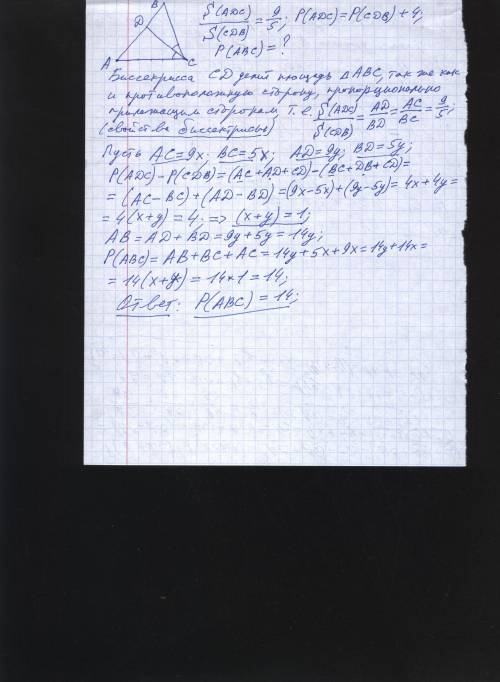 B
D
A
C
S(ADC)/S(CDB) = 9/5; P(ADC)=P(CDB)+4;
P(ABC)=?
Биссектрисса CD делит площадь ΔABC, так же как
и противоположную сторону, пропорционально
прилежащим сторонам, т.е. S(ADC)/S(CDB) = AD/BD = AC/BC = 9/5;
(свойство биссектрисы)
Пусть AC=9x; BC=5x; AD=9y; BD=5y;
P(ADC)-P(CDB)=(AC+AD+CD)-(BC+DB+CD)=
=(AC-BC)+(AD-BD)=(9x-5x)+(9y-5y)=4x+4y=
=4(x+y)=4; => (x+y)=1;
AB=AD+BD=9y+5y=14y;
P(ABC)=AB+BC+AC=14y+5x+9x=14y+14x=
=14(x+y)=14*1=14;
Ответ: P(ABC)=14;